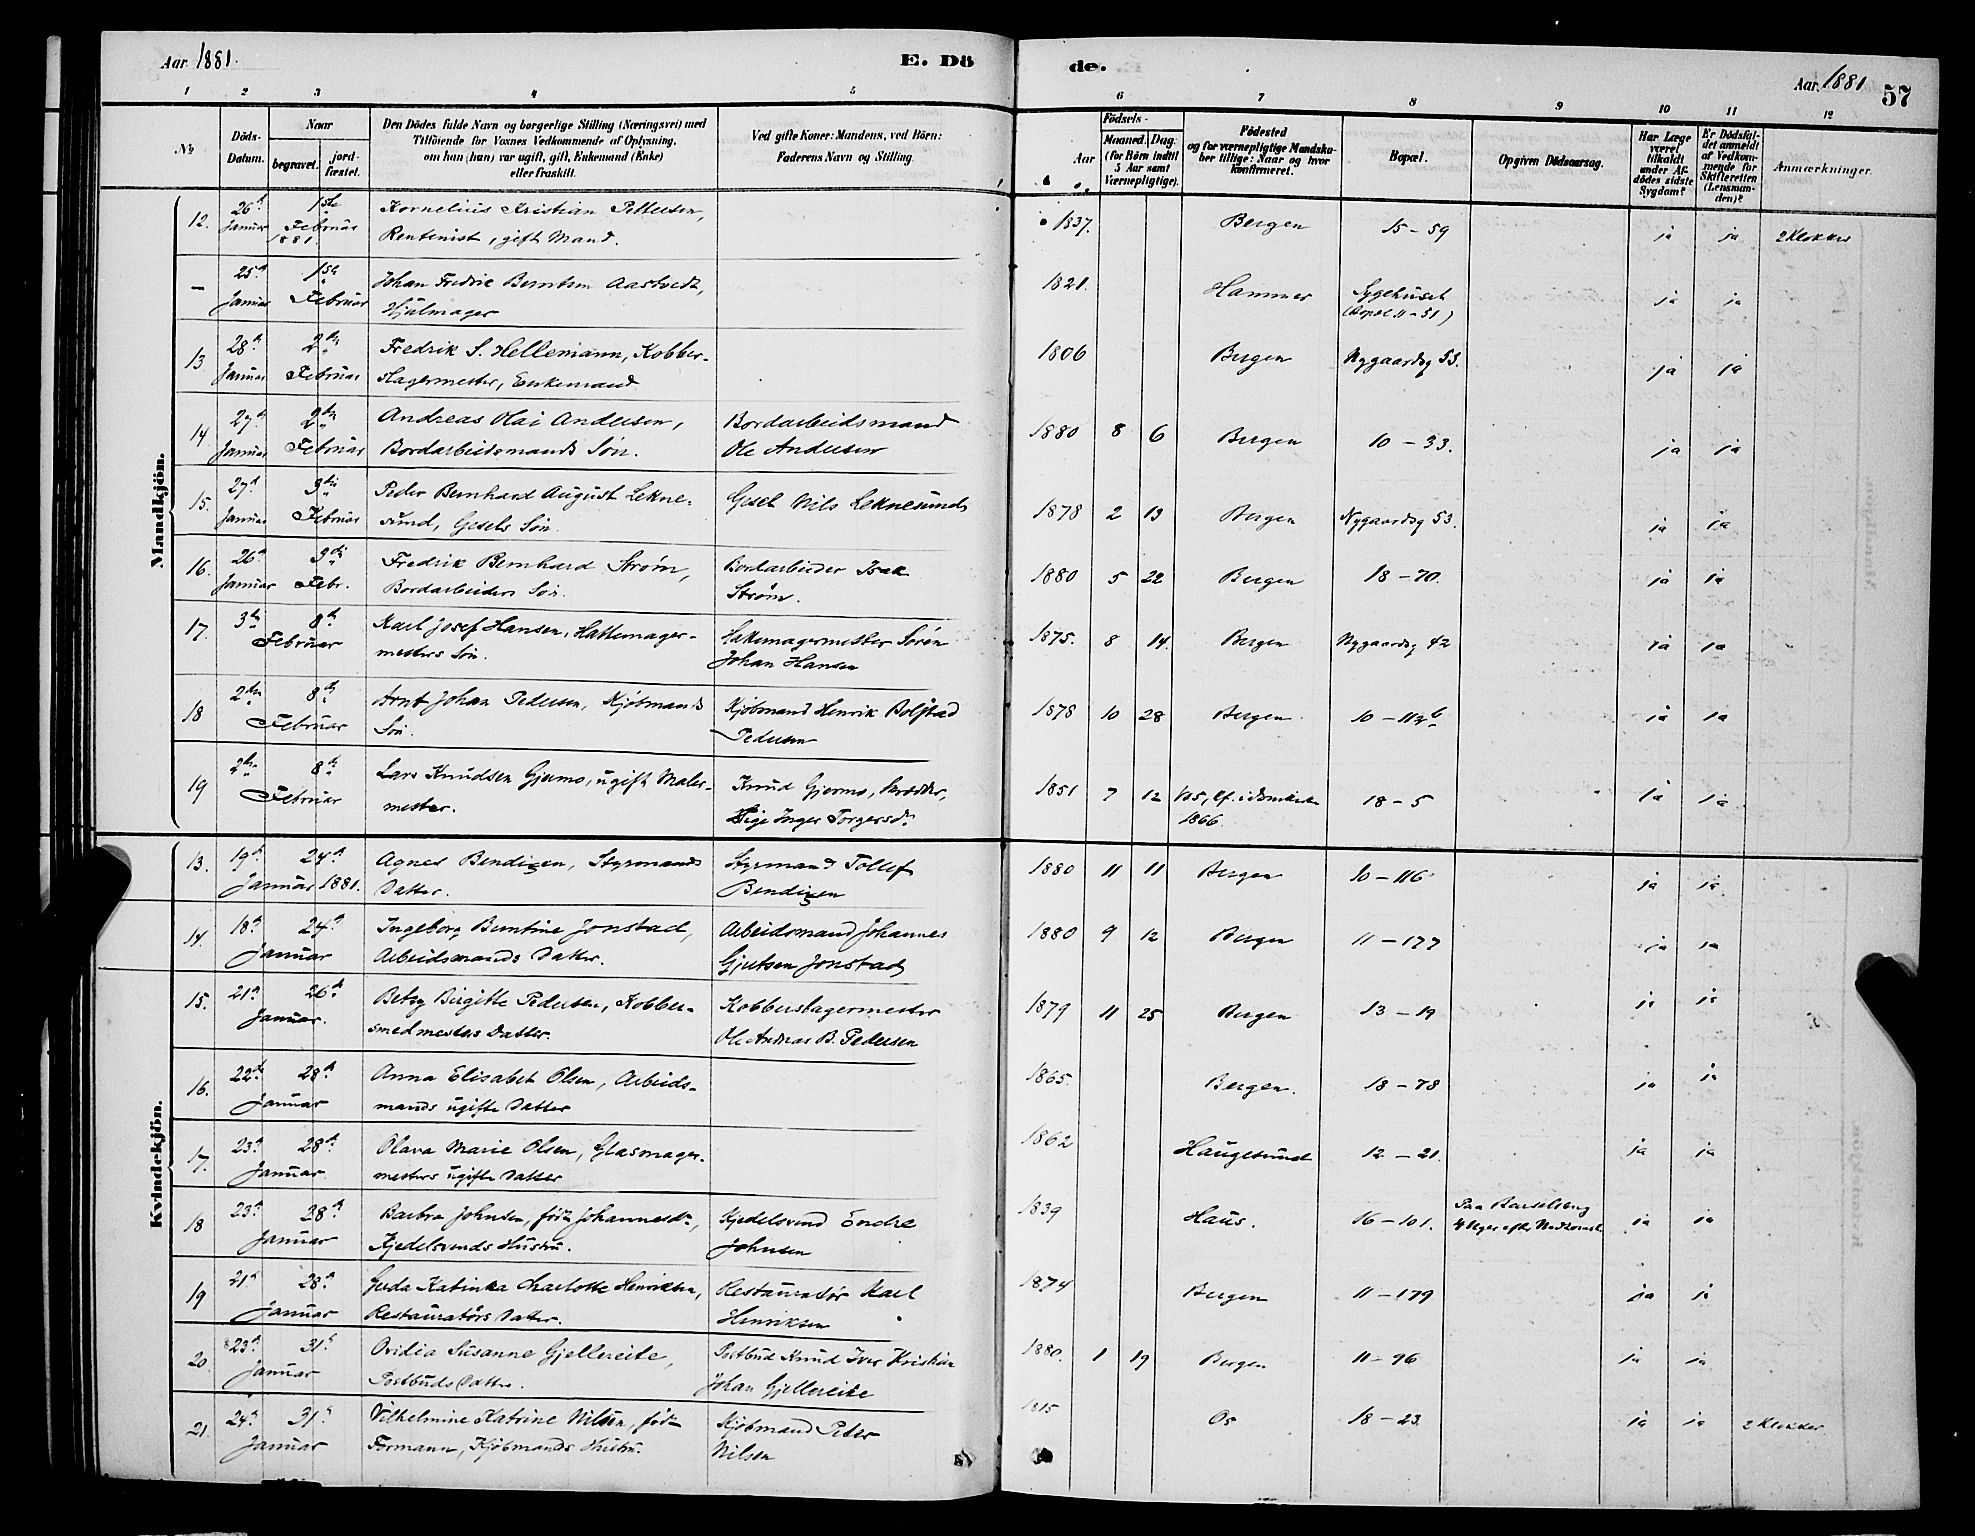 Aar 1881.
E. Dö
de.
Aar 1881
57
1 2 3 4 5 6 7 8 9 10 11 12
No
Döds-
Datum.
Naar
begravet.
jord-
fæstet.
Den Dödes fulde Navn og borgerlige Stilling (Næringsvei) med
Tilföiende for Voxnes Vedkommende af Oplysning,
om han (hun) var ugift, gift, Enkemand (Enke)
eller fraskilt.
Ved gifte Koner: Mandens, ved Börn:
Faderens Navn og Stilling.
Födsels-
Aar
Maaned.
Dag.
(for Börn indtil
5 Aar samt
Værnepligtige).
Födested
og for værnepligtige Mandska-
ber tillige: Naar og hvor
konfirmeret.
Bopæl.
Opgiven Dödsaarsag.
Har Læge
været
tilkaldt
under Af-
dödes sidste
Sygdom?
Er Dödsfal-
det anmeldt
af Vedkom-
mende for
Skifteretten
(Lensman-
den)?
Anmærkninger.
Mandkjön.
12. 26de 1ste Kornelius Kristian Pettersen, 1837. Bergen 15-59 ja ja 2 Klokker
Januar Februar Rentenist, gift Mand.
1881.
- 25de 1ste Johan Fredric Berntsen Aastvedt, 1821. Hammer Sygehuset ja ja
Januar Februar Hjulmager (Bopæl 11-51)
13 28de 2den Fredrik S. Hellemann, Kobber- 1806 Bergen Nygaardsg 53. ja ja
Januar Februar slagermester, Enkemand
14 27de 2den Andreas Olai Andersen, Bordarbeidsmand 1880 8 6 Bergen 10-33. ja ja
Januar Februar Bordarbeidsmands Sön. Ole Andersen
15. 27de 3die Peder Bernhard August Lekne- Gesel Nils Leknesund 1878 2 13 Bergen Nygaardsg 53. ja ja
Januar Februar sund, Gesels Sön.
16. 26de 3die Fredrik Bernhard Strøm, Bordarbeider Isak 1880 5 22 Bergen 18-70. ja ja
Januar Febr. Bordarbeiders Sön. Strøm.
17. 3die 8de Karl Josef Hansen, Hattemager- Hattemagermester Sören 1875. 8 14. Bergen Nygaardsg 42 ja ja
Februar mesters Sön. Johan Hansen
18 2den 8de Arnt Johan Pedersen, Kjöbmands Kjöbmand Henrik Bolstad 1878 10 28 Bergen. 10-112b ja ja
Februar Sön. Pedersen
19 2den 8de Lars Knudsen Gjermo, ugift Maler- Knud Gjermo, 1851 7 12 Vos, 18-5 ja ja
Februar mester. Pige Inger Torgersdr. 1866.
Kvindekjön.
13. 19de 24de Agnes Bendixen, Styrmands Styrmand Tollef 1880 11 11 Bergen 10-116 ja ja
Januar 1881. Datter. Bendixen
14. 18de 24de Ingeborg Berntine Jonstad, Arbeidsmand Johannes 1880 9 12 Bergen 11-177 ja ja
Januar Arbeidsmands Datter. Gjertsen Jonstad
15. 21de 26de Betsy Birgitte Pedersen, Kobber- Kobberslagermester 1879 11 25 Bergen 13-19 ja ja
Januar. smedmesters Datter. Ole Andreas B. Pedersen
16. 22de 28de Anna Elisabet Olsen, Arbeids- 1865. Bergen. 18-78 ja ja
Januar mands ugifte Datter
17. 23de 28de Olava Marie Olsen, Glasmager- 1862 Haugesund 12-21. ja ja
Januar mesters ugifte Datter
18 23de 28de Barbra Johnsen, född Johannesdr., Kjedelsvend Endre 1839 Haus. 16-101. Paa Barselseng ja ja
Januar Kjedelsvends Hustru. Johnsen 4 Uger efter Nedkomst
19 21de 28de Gerda Katinka Charlotte Henriksen, Restauratör Karl 1874 Bergen 11-179 ja ja
Januar Restauratörs Datter. Henriksen
20. 23de 31te Ovidia Susanne Gjellereite, Postbud Knud Iver Kristian 1880. 1 19 Bergen 11-96 ja ja
Januar Postbuds Datter. Johan Gjellereite
21. 24de 31te Vilhelmine Katrine Nilsen, född Kjöbmand Peter 1815 Os 18-23. ja ja 2 Klokker
Januar Formann, Kjöbmands Hustru. Nilsen